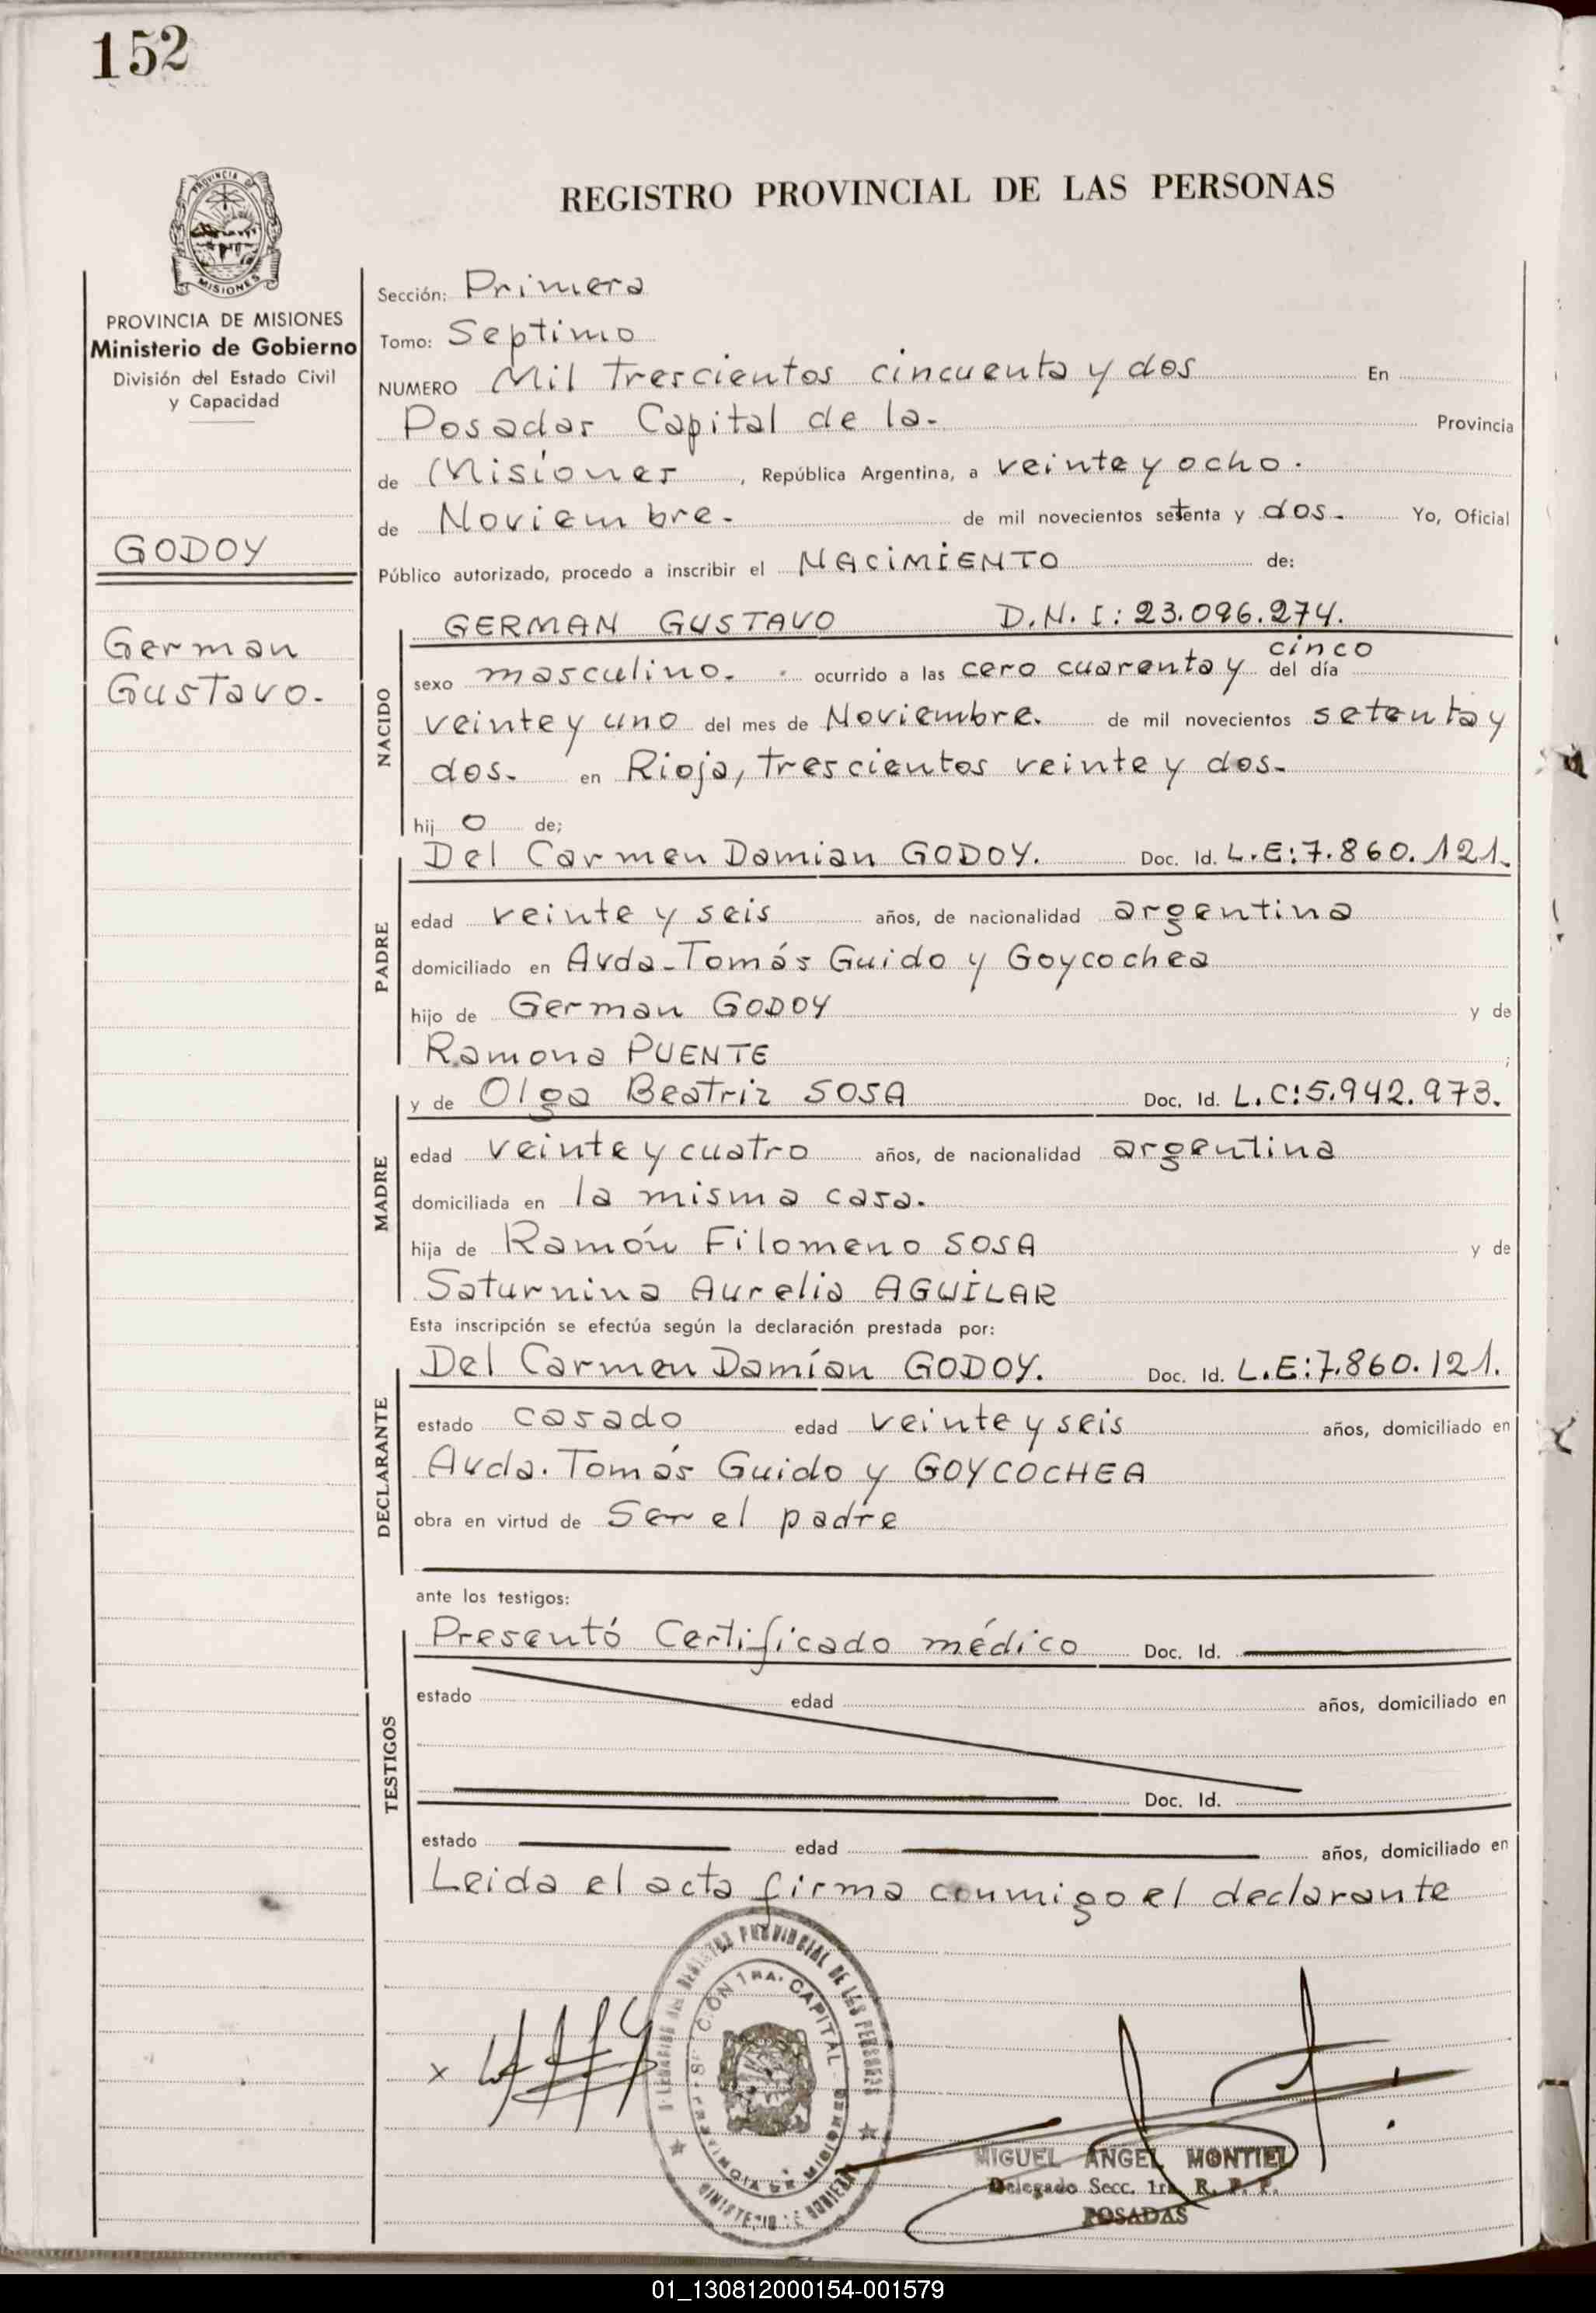 152
PROVINCIA DE
MISIONES
REGISTRO PROVINCIAL DE LAS PERSONAS
PROVINCIA DE MISIONES
Ministerio de Gobierno
División del Estado Civil
y Capacidad
GODOY
German
Gustavo.
Sección: Primera
Tomo: Septimo
NUMERO Mil Trescientos cincuenta y dos En
Posadas Capital de la. Provincia
de Misiones, República Argentina, a veinte y ocho.
de Noviembre. de mil novecientos setenta y dos. Yo, Oficial
Público autorizado, procedo a inscribir el NACIMIENTO de:
NACIDO
GERMAN GUSTAVO D.N.I: 23.096.274.
cinco
sexo masculino. ocurrido a las cero cuarenta y del día
veinte y uno del mes de Noviembre. de mil novecientos setenta y
dos. en Rioja, trescientos veinte y dos.
hij o de;
PADRE
Del Carmen Damian GODOY. Doc. Id. L.E:7.860.121.
edad veinte y seis años, de nacionalidad argentina
domiciliado en Avda. Tomás Guido y Goycochea
hijo de German GODOY y de
Ramona PUENTE ;
MADRE
y de Olga Beatriz SOSA Doc. Id. L.C:5.942.973.
edad veinte y cuatro años, de nacionalidad argentina
domiciliada en la misma casa.
hija de Ramón Filomeno SOSA y de
Saturnina Aurelia AGUILAR
Esta inscripción se efectúa según la declaración prestada por:
DECLARANTE
Del Carmen Damían GODOY. Doc. Id. L.E:7.860.121.
estado casado edad veinte y seis años, domiciliado en
Avda. Tomás Guido y GOYCOCHEA
obra en virtud de Ser el padre
ante los testigos:
TESTIGOS
Presentó Certificado médico Doc. Id.
estado edad años, domiciliado en
Doc. Id.
estado edad años, domiciliado en
Leida el acta firma conmigo el declarante
REGISTRO PROVINCIAL DE LAS PERSONAS
1RA. CAPITAL
PROVINCIA DE MISIONES
MINISTERIO DE GOBIERNO
x
MIGUEL ANGEL MONTIEL
Delegado Secc. 1ra. R. P. P.
POSADAS
01_130812000154-001579